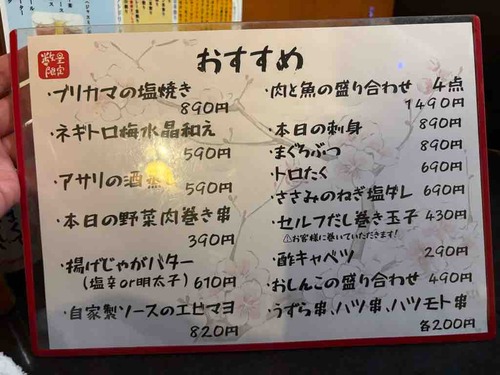 数量
限定
おすすめ
・ブリカマの塩焼き
890円
・ネギトロ梅水晶和え
590円
・アサリの酒
590円
・本日の野菜肉巻き串
390円
・揚げじゃがバター
(塩辛or明太子) 610円
・自家製ソースのエビマヨ
820円
・肉と魚の盛り合わせ 4点
1490円
・本日の刺身 890円
・まぐろぶつ 890円
・トロたく 690円
・ささみのねぎ塩ダレ 690円
・セルフだし巻き玉子 430円
⚠お客様に巻いていただきます!
・酢キャベツ 290円
・おしんこの盛り合わせ 490円
・うずら串、ハツ串、ハツモト串
各200円